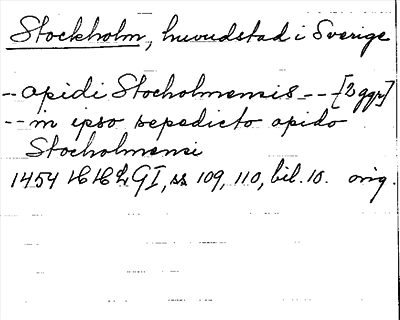 Stockholm, huvudstad i Sverige
-- opidi Stocholmensis --- [2 ggr]
-- in ipso sepedicto opido
Stocholmensi
1454 HH 2, GI, ss 109, 110, bil. 10. orig.